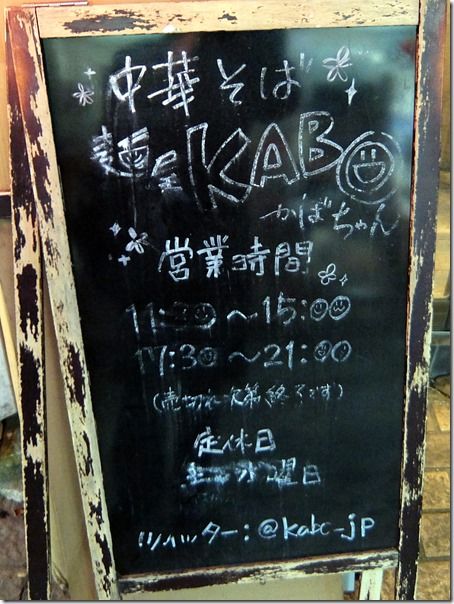 中華そば
麺屋 KABO
かばちゃん
営業時間
11:30～15:00
17:30～21:00
(売切れ次第終了です)
定休日
水曜日
ツイッター:@kabc_jp